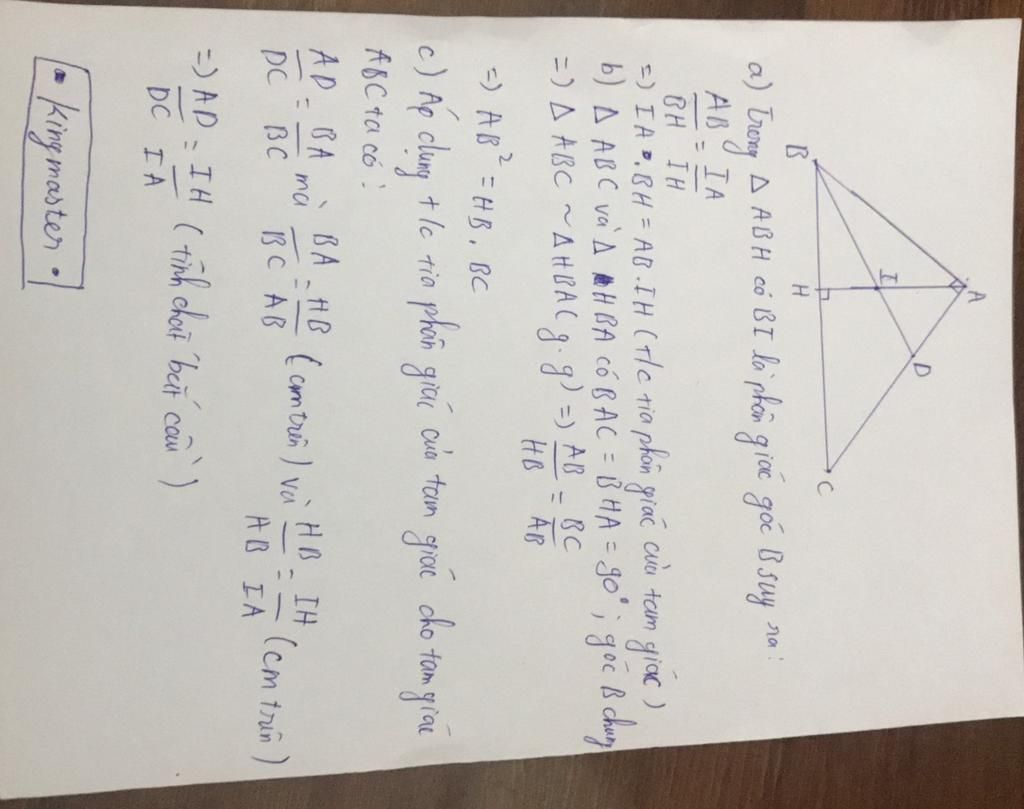 A
B
I
D
H
C
a) Trong Δ ABH có BI là phân giác góc B suy ra:
AB/BH = IA/IH
=) IA . BH = AB . IH ( t/c tia phân giác của tam giác )
b) Δ ABC và Δ HBA có BAC = BHA = 90° ; góc B chung
=) Δ ABC ~ Δ HBA ( g.g ) =) AB/HB = BC/AB
=) AB² = HB . BC
c) Áp dụng t/c tia phân giác của tam giác cho tam giác
ABC ta có :
AD/DC = BA/BC mà BA/BC = HB/AB (cm trên) và HB/HB = IH/IA (cm trên)
=) AD/DC = IH/IA ( tính chất bắt cầu )
• kingmaster •